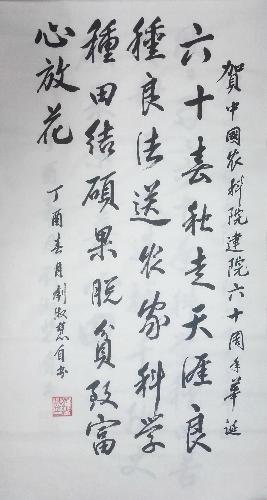 賀中國农科院建院六十周年華诞
六十春秋走天涯良
種良法送农家科学
種田结碩果脱貧致富
心放花
丁酉春月刘淑慧自书